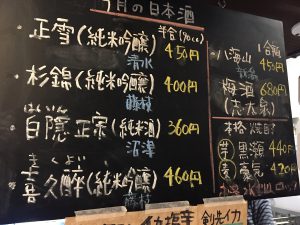 月の日本酒
半合(90cc)
正雪(純米吟醸) 450円
清水
杉錦(純米吟醸) 400円
藤枝
はくいん
白隠正宗(純米酒) 360円
沼津
きくよい
喜久醉(純米吟醸) 460円
藤枝
八海山 450円
梅酒 680円
(志太泉)
本格焼酎
芋 黒瀬 440円
420円
剣先イカ